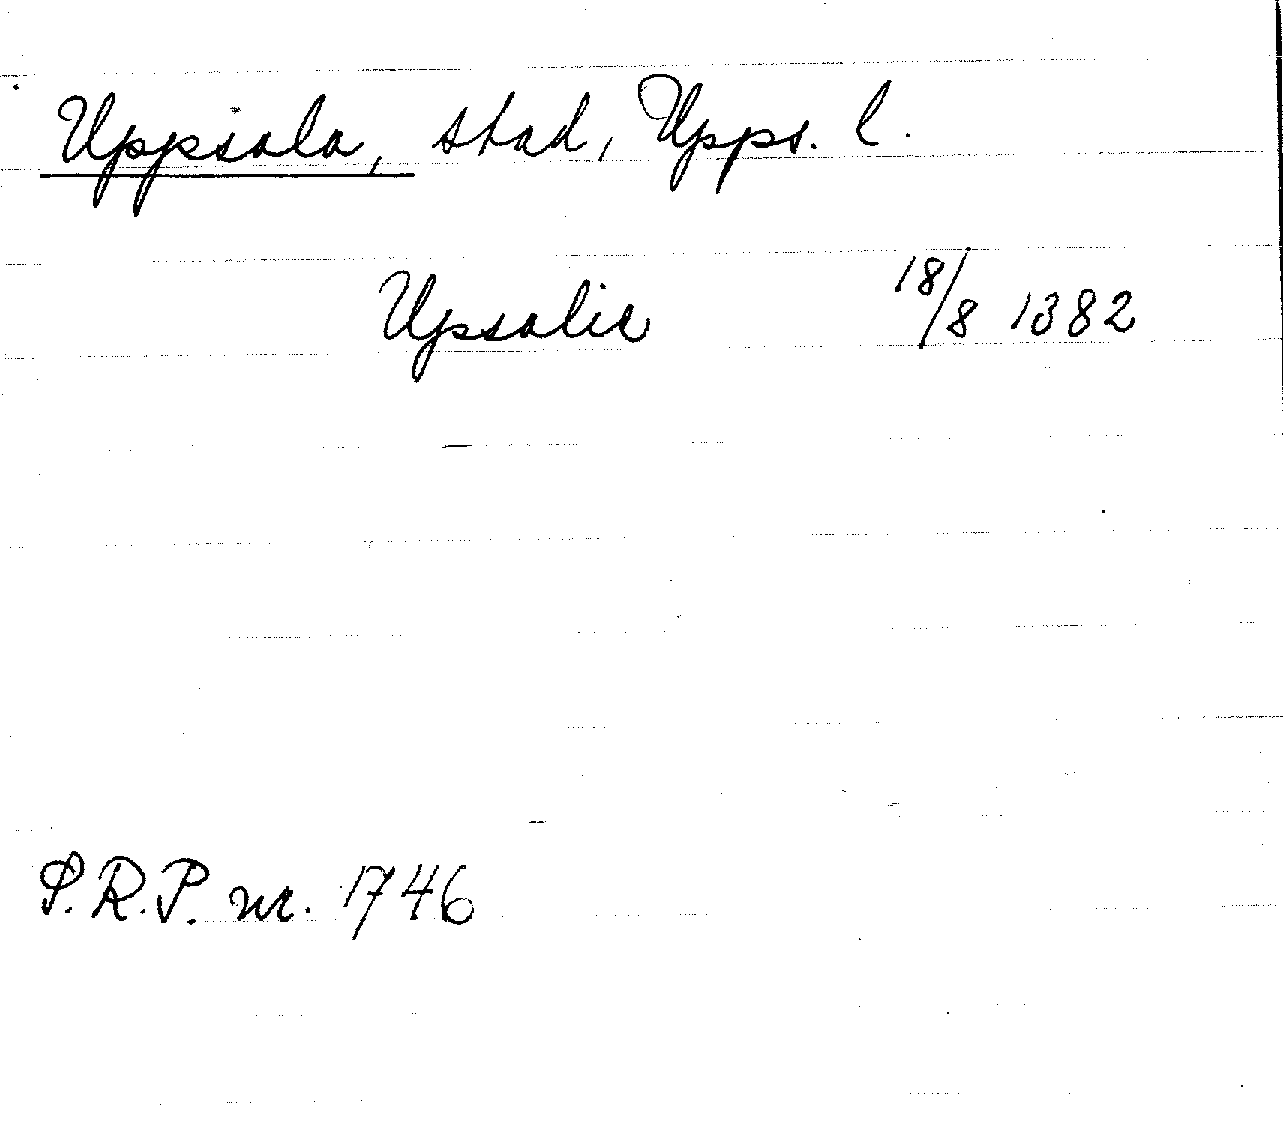 Uppsala, stad, Upps. l.
Upsalie 18/8 1382
S.R.P. nr. 1746